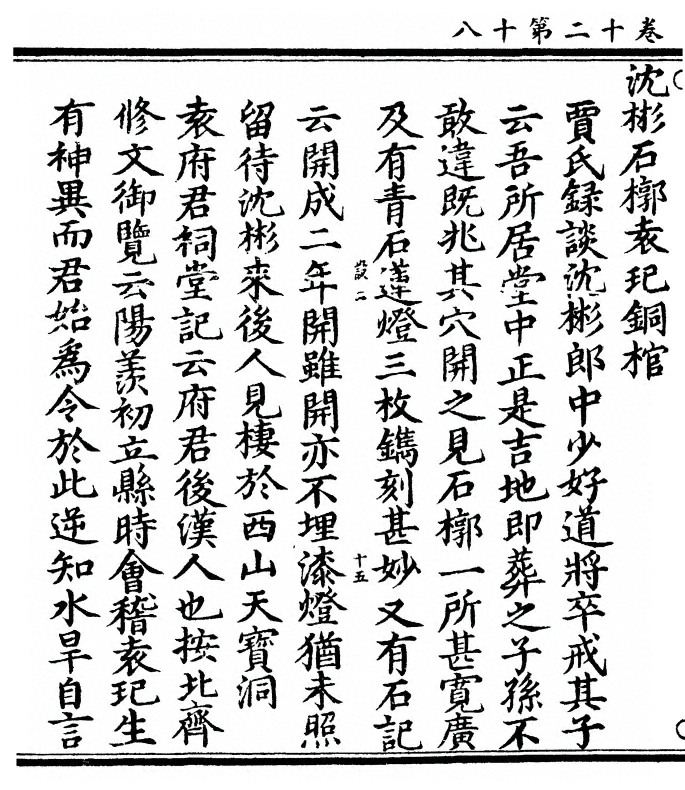 卷十二第十八
沈彬石槨袁玘銅棺
賈氏録談沈彬郎中少好道將卒戒其子
云吾所居堂中正是吉地即葬之子孫不
敢違既兆其穴開之見石槨一所甚寬廣
及有青石蓮燈三枚鐫刻甚妙又有石記
設二
十五
云開成二年開雖開亦不埋漆燈猶未照
留待沈彬来後人見棲於西山天寳洞
袁府君祠堂記云府君後漢人也按北齊
修文御覽云陽羨初立縣時會稽袁玘生
有神異而君始爲令於此逆知水旱自言